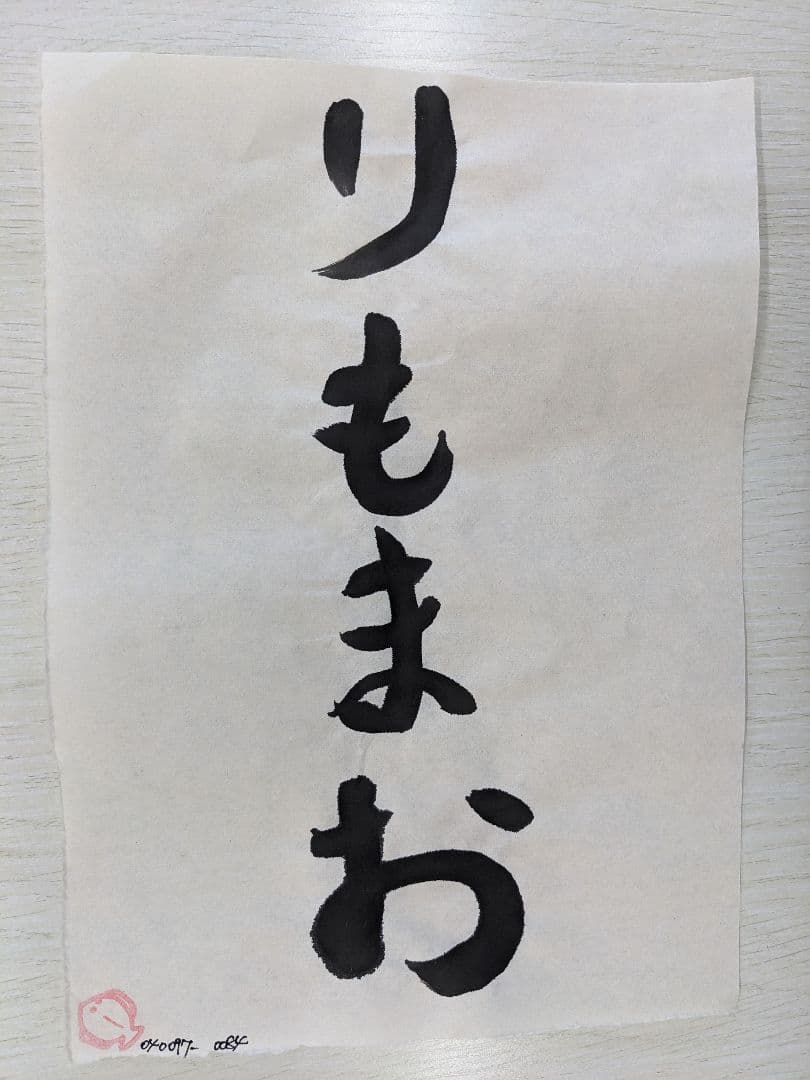 りもまお
040097-0084